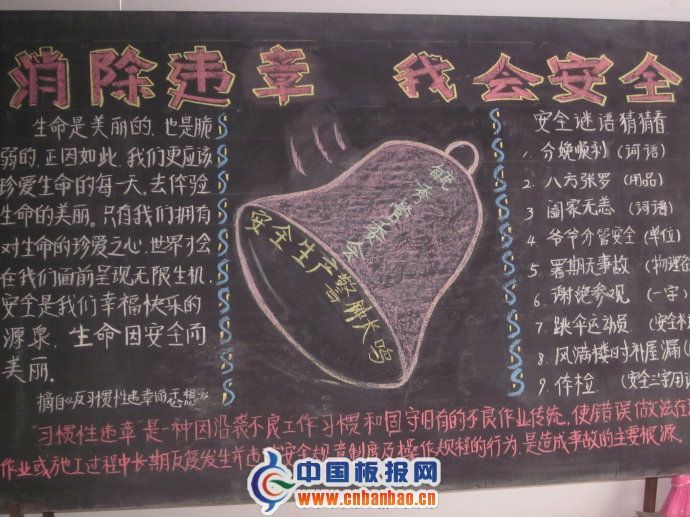 消除违章 我会安全
生命是美丽的，也是脆
弱的，正因如此，我们更应该
珍爱生命的每一天，去体验
生命的美丽。只有我们拥有
对生命的珍爱之心，世界才会
在我们面前呈现无限生机，
安全是我们幸福快乐的
源泉，生命因安全而
美丽。
摘自《反习惯性违章的思想》
安全生产警钟大鸣
安全谜语猜猜看
1. 分娩顺利 (词语)
2. 八方张罗 (用品)
3. 阖家无恙 (词语)
4. 爷爷分管安全 (单位)
5. 暑期无事故 (物理
6. 谢绝参观 (一字)
7. 跳伞运动员 (安全
8. 风满楼时补屋漏 (
9. 体检 (安全三字用语
"习惯性违章"是一种因沿袭不良工作习惯和固守旧有的不良作业传统，使错误做法在
作业或施工过程中长期反复发生并违 安全规章制度及操作规程的行为，是造成事故的主要根源。
中国板报网
www.cnbanbao.cn